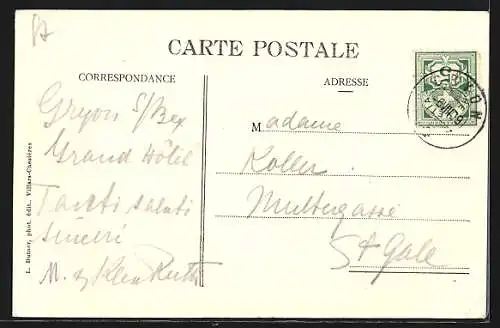 CARTE POSTALE
CORRESPONDANCE
ADRESSE
Gryon s/Bex
Grand Hôtel
Tanti saluti
sinceri
M. Ruth
Madame
Koller
Multergasse
St Gale
GRYON
L. Dutser, phot. édit., Villars-Chesières